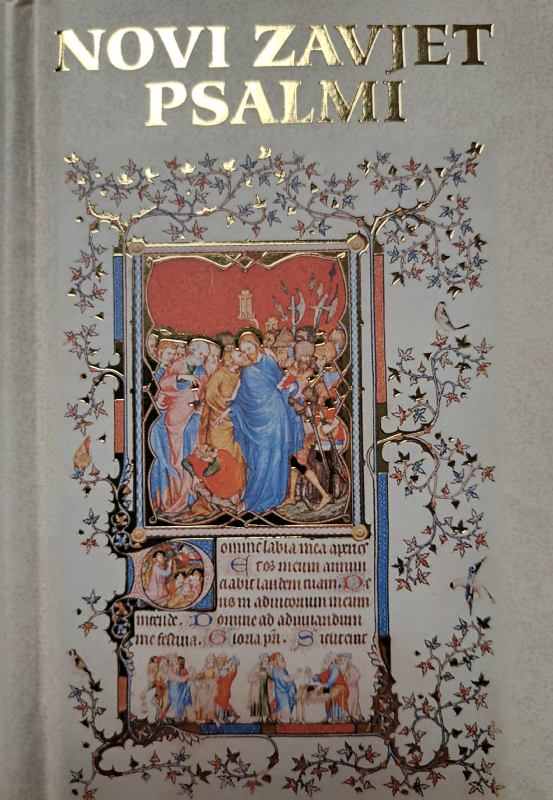 NOVI ZAVJET
PSALMI
Domine labia mea aperies
Et os meum annun
ciabit laudem tuam. De
us in adiutorium meum
intende. Domine ad adiuvandum
me festina. Gloria